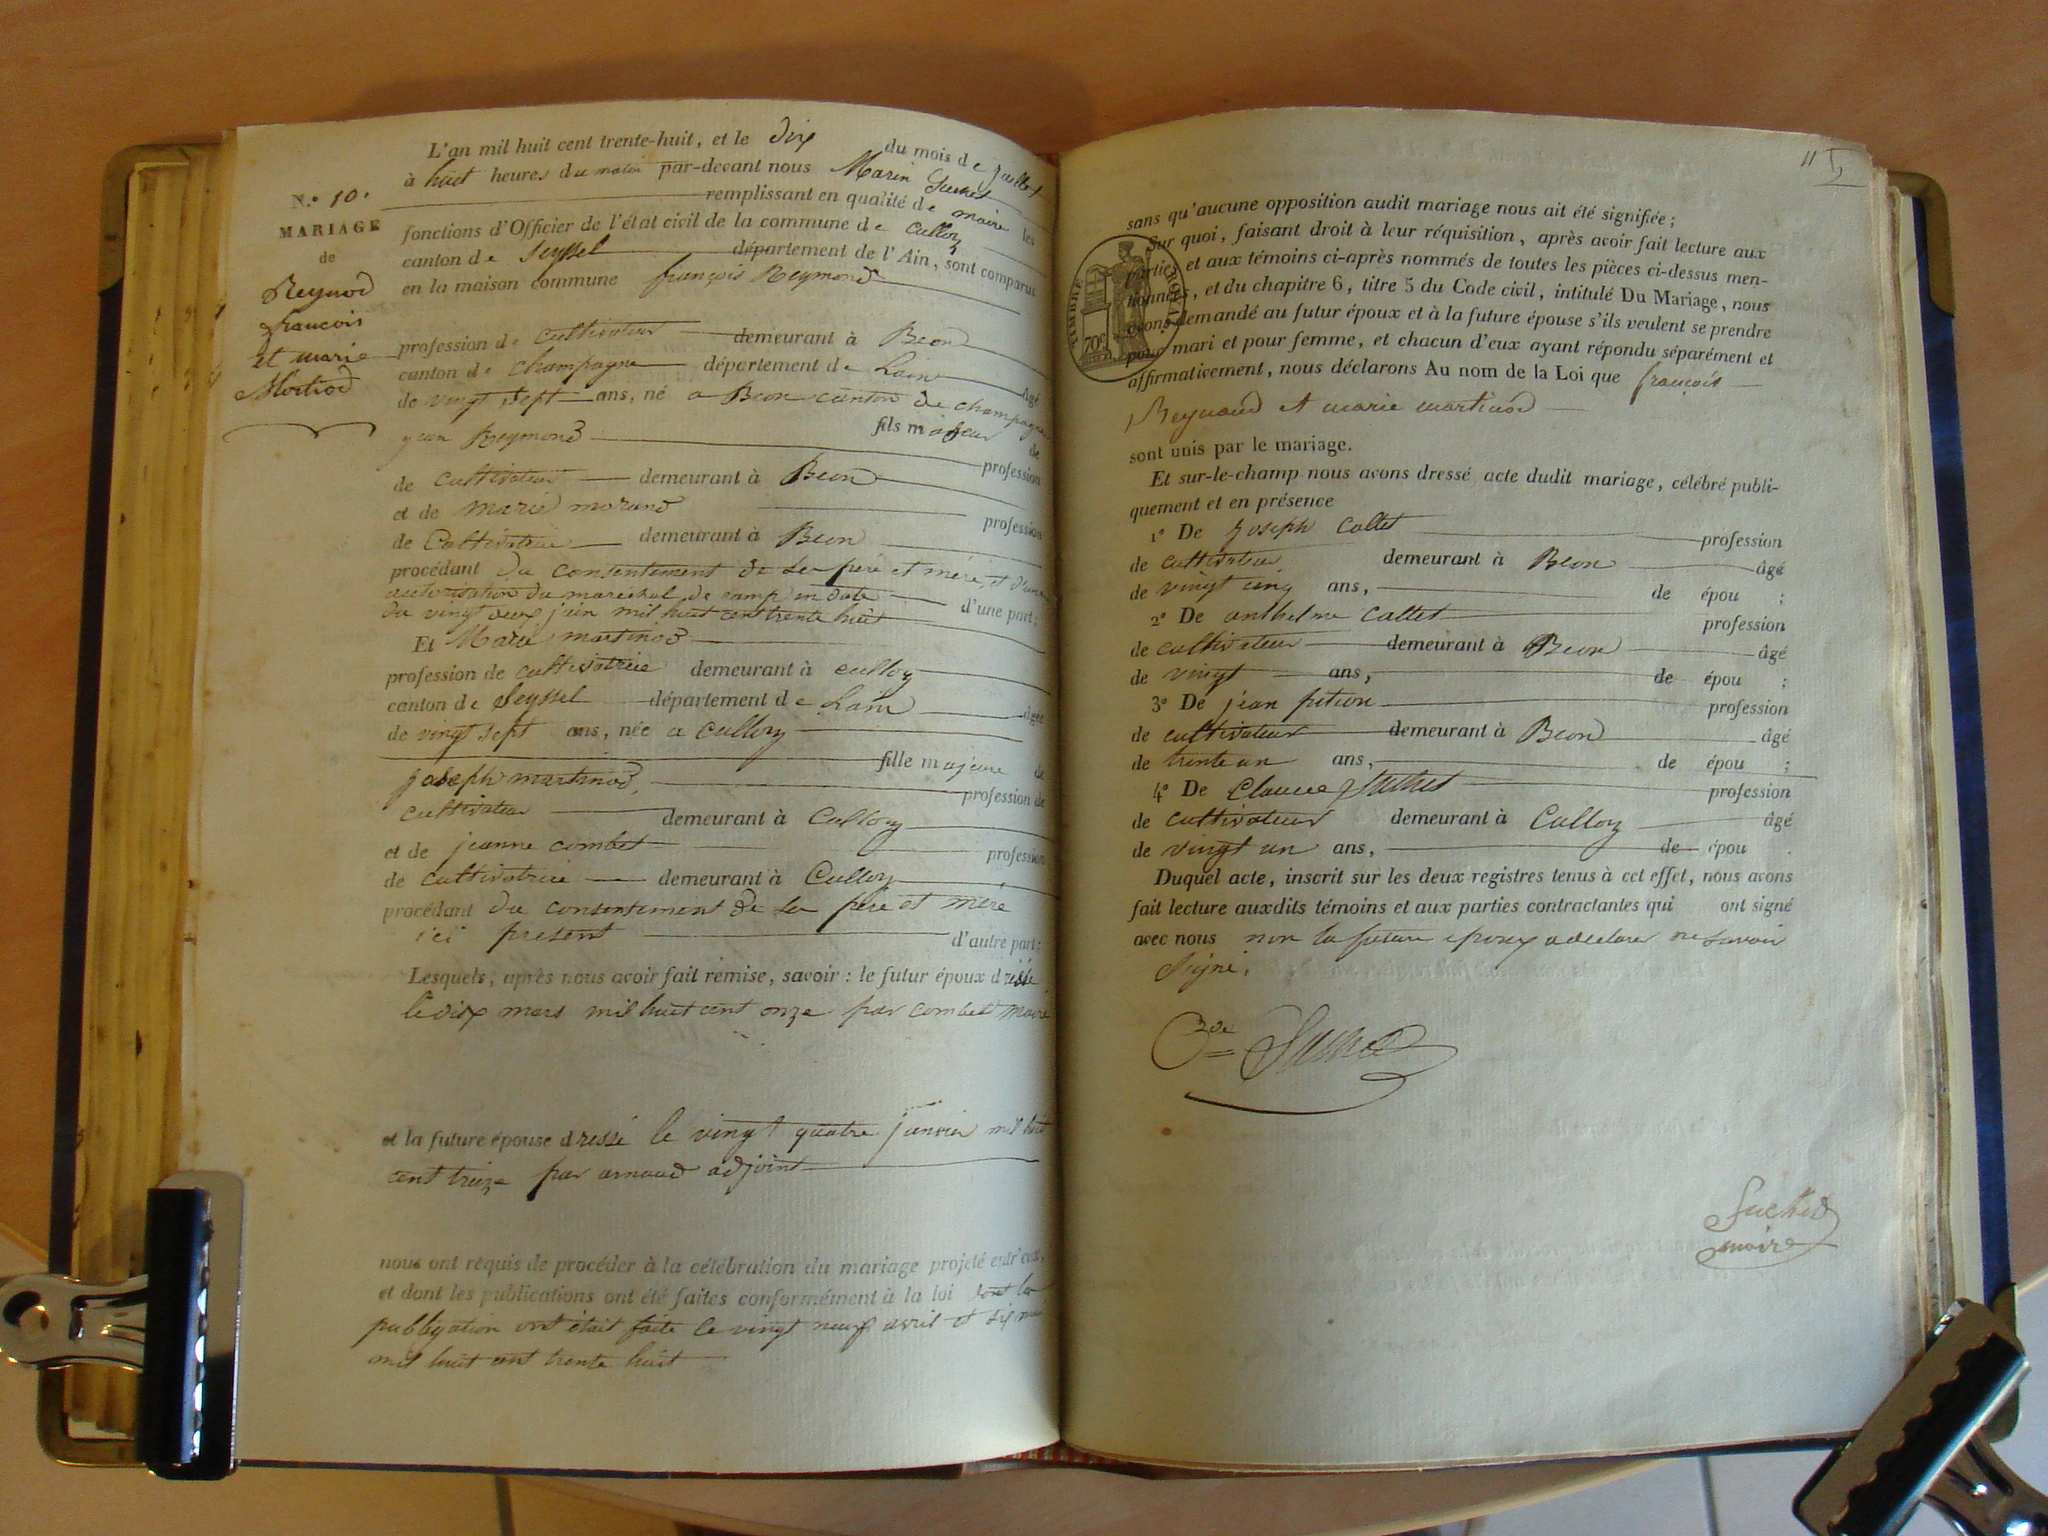 L'an mil huit cent trente-huit, et le dix du mois de juillet
à huit heures du matin par-devant nous Marin Suchet
remplissant en qualité de maire les
fonctions d'Officier de l'état civil de la commune de Culloz
canton de Seyssel département de l'Ain, sont comparus
en la maison commune françois Reymond
N.° 10.
MARIAGE
de
Reynod
francois
et marie
Martinod
profession de cultivateur demeurant à Beon
canton de Champagne département de Lain âgé
de vingt sept ans, né a Beon canton de champagne
fils majeur de
jean Reymond profession
de cultivateur demeurant à Beon
et de marie morand profession
de Cultivatrice demeurant à Beon
procédant du consentement de ses père et mère, et d'une
autorisation du marechal de camp en date
du vingt deux juin mil huit cent trente huit d'une part;
Et Marie martinod
profession de cultivatrice demeurant à culloz
canton de Seyssel département de Lain âgée
de vingt sept ans, née a culloz
fille majeure de
joseph martinod, profession de
cultivateur demeurant à Culloz
et de jeanne combet profession
de cultivatrice demeurant à Culloz
procédant du consentement de ses père et mère
ici present d'autre part:
Lesquels, après nous avoir fait remise, savoir: le futur époux dressé
le dix mars mil huit cent onze par combet maire
et la future épouse dressé le vingt quatre janvier mil huit
cent treize par arnaud adjoint
nous ont requis de procéder à la célébration du mariage projeté entr'eux,
et dont les publications ont été faites conformément à la loi dont les
publiyation ont était faite le vingt neuf avril et six mai
mil huit cent trente huit
11
sans qu'aucune opposition audit mariage nous ait été signifiée;
Sur quoi, faisant droit à leur réquisition, après avoir fait lecture aux
parties et aux témoins ci-après nommés de toutes les pièces ci-dessus men-
tionnées, et du chapitre 6, titre 5 du Code civil, intitulé Du Mariage, nous
avons demandé au futur époux et à la future épouse s'ils veulent se prendre
pour mari et pour femme, et chacun d'eux ayant répondu séparément et
affirmativement, nous déclarons Au nom de la Loi que françois
TIMBRE ROYAL
70c
Reynaud et marie martinod
sont unis par le mariage.
Et sur-le-champ nous avons dressé acte dudit mariage, célébré publi-
quement et en présence
1° De Joseph Caltet profession
de cultivateur demeurant à Beon âgé
de vingt cinq ans, de épou ;
2° De anthelme Caltet profession
de cultivateur demeurant à Beon âgé
de vingt ans, de épou ;
3° De jean pition profession
de cultivateur demeurant à Beon âgé
de trente un ans, de épou ;
4° De Claude Suchet profession
de cultivateur demeurant à Culloz âgé
de vingt un ans, de épou .
Duquel acte, inscrit sur les deux registres tenus à cet effet, nous avons
fait lecture auxdits témoins et aux parties contractantes qui ont signé
avec nous non la future epoux a declare ne savoir
signé.
Suchet
Suchet
maire